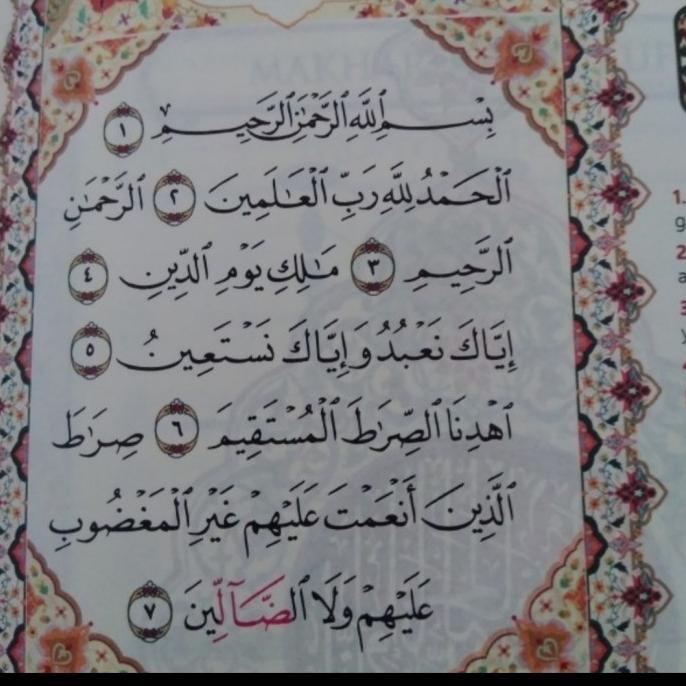 بِسْمِ ٱللَّهِ ٱلرَّحْمَٰنِ ٱلرَّحِيمِ ١
ٱلْحَمْدُ لِلَّهِ رَبِّ ٱلْعَٰلَمِينَ ٢ ٱلرَّحْمَٰنِ
ٱلرَّحِيمِ ٣ مَٰلِكِ يَوْمِ ٱلدِّينِ ٤
إِيَّاكَ نَعْبُدُ وَإِيَّاكَ نَسْتَعِينُ ٥
ٱهْدِنَا ٱلصِّرَٰطَ ٱلْمُسْتَقِيمَ ٦ صِرَٰطَ
ٱلَّذِينَ أَنْعَمْتَ عَلَيْهِمْ غَيْرِ ٱلْمَغْضُوبِ
عَلَيْهِمْ وَلَا ٱلضَّآلِّينَ ٧
1.
2